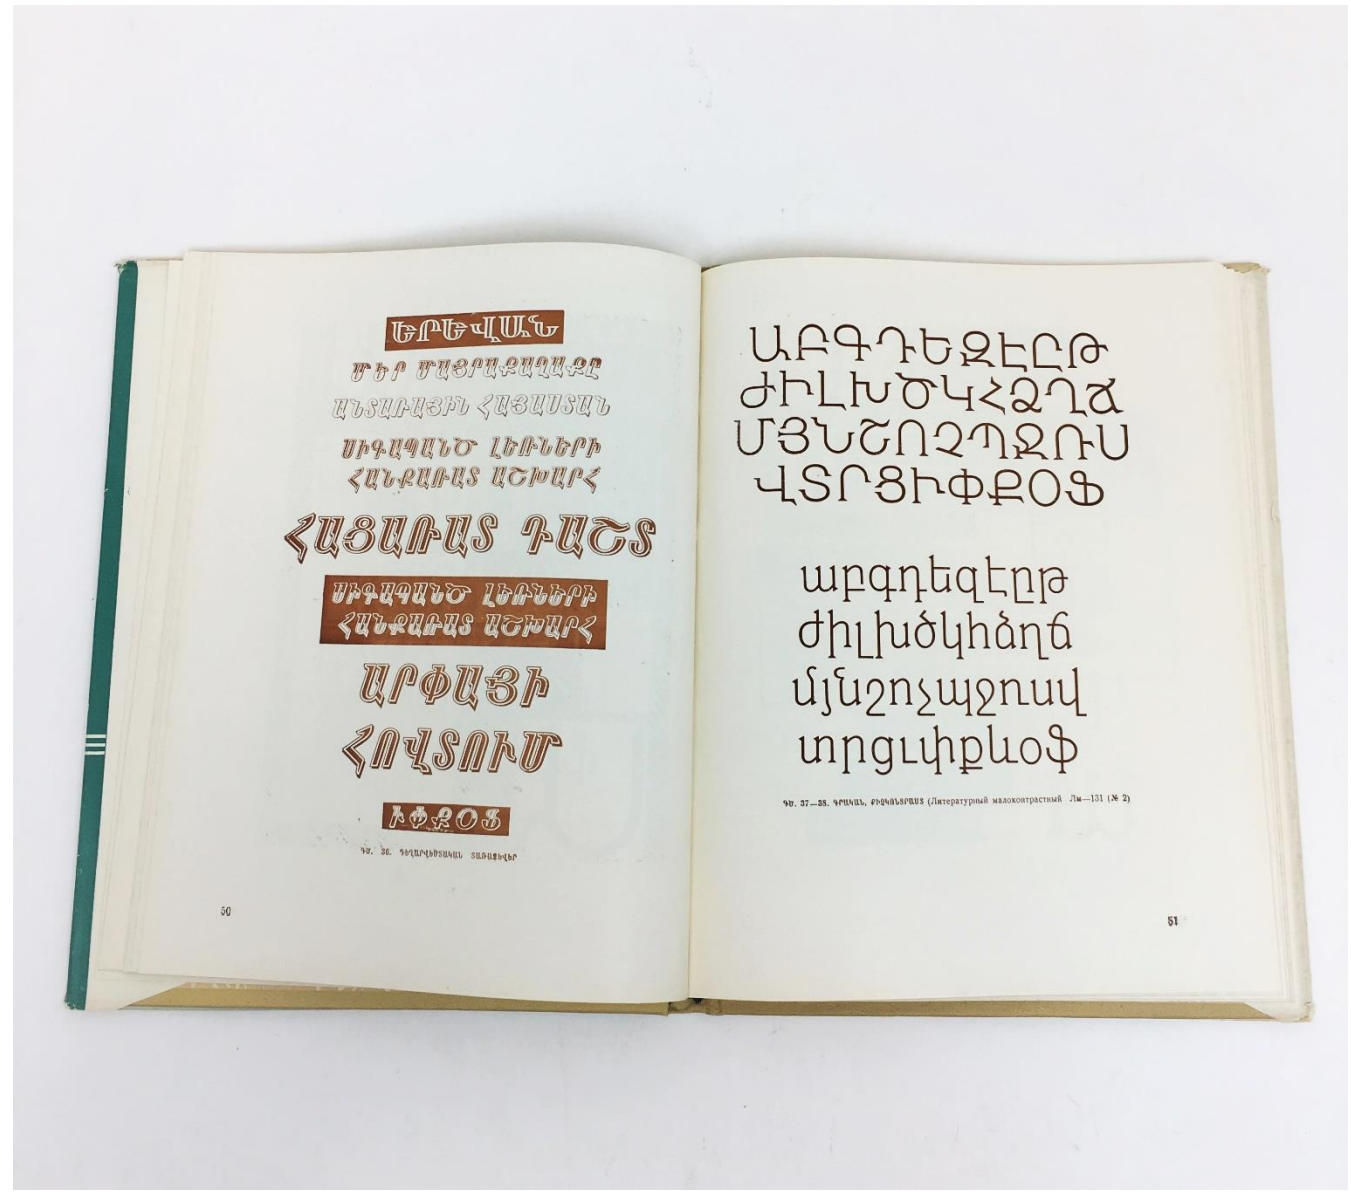 ԵՐԵՎԱՆ
ՄԵՐ ՄԱՅՐԱՔԱՂԱՔԸ
ԱՆՏԱՌԱՅԻՆ ՀԱՅԱՍՏԱՆ
ՍԻԳԱՊԱՆԾ ԼԵՌՆԵՐԻ
ՀԱՆՔԱՌԱՏ ԱՇԽԱՐՀ
ՀԱՑԱՌԱՏ ԴԱՇՏ
ՍԻԳԱՊԱՆԾ ԼԵՌՆԵՐԻ
ՀԱՆՔԱՌԱՏ ԱՇԽԱՐՀ
ԱՐՓԱՅԻ
ՀՈՎՏՈՒՄ
ՒՓՔՕՖ
ԳԾ. 36. ԳԵՂԱՐՎԵՍՏԱԿԱՆ ՏԱՌԱՁԵՎԵՐ
50
ԱԲԳԴԵԶԷԸԹ
ԺԻԼԽԾԿՀՁՂՃ
ՄՅՆՇՈՉՊՋՌՍ
ՎՏՐՑՒՓՔՕՖ
աբգդեզէըթ
ժիլխծկհձղճ
մյնշոչպջռսվ
տրցւփքևօֆ
ԳԾ. 37—38. ԳՐԱԿԱՆ, ՔԻՉԿՈՆՏՐԱՍՏ (Литературный малоконтрастный Лм—131 (№ 2)
51